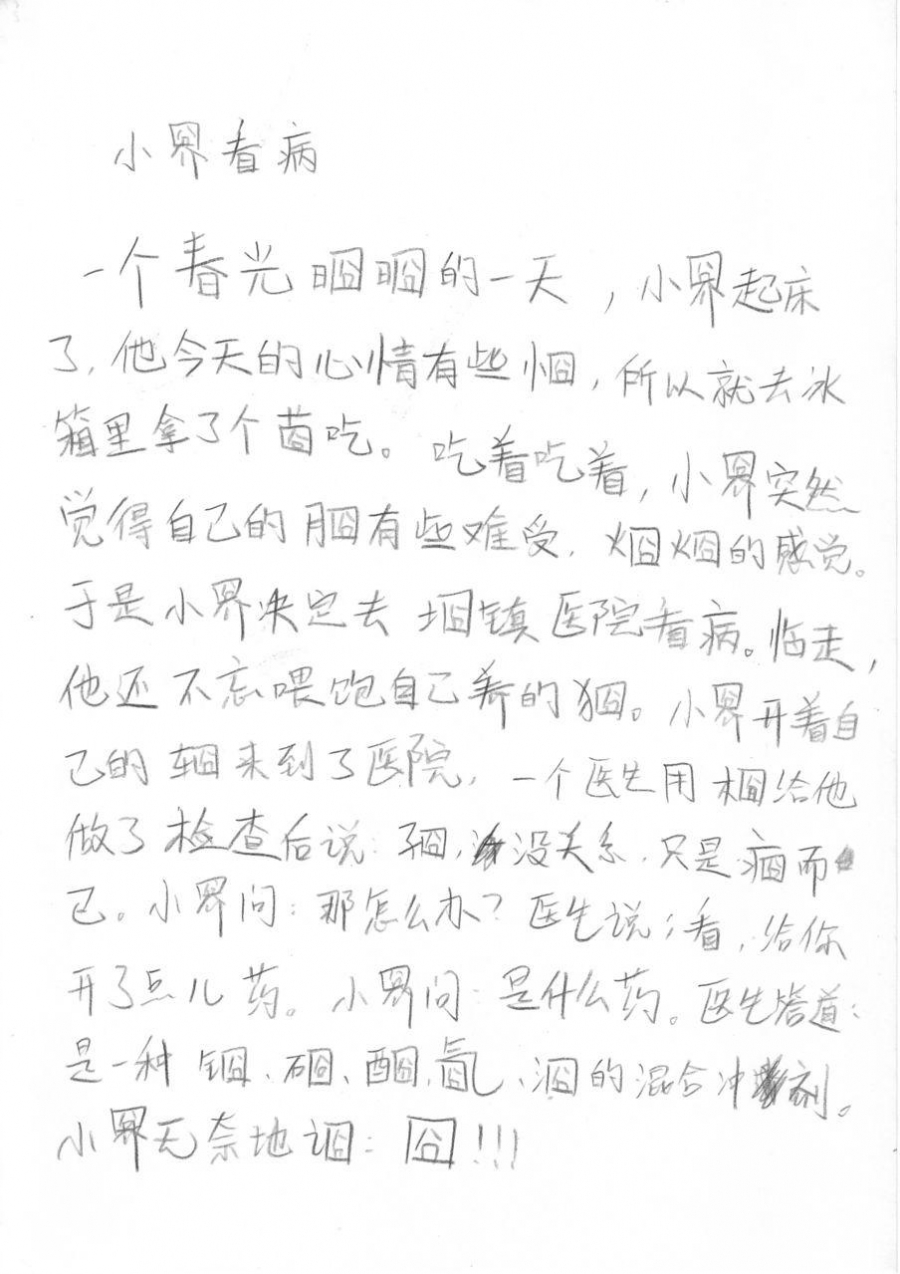 小⿱囧介看病
一个春光⿰日囧⿰日囧的一天，小⿱囧介起床
了，他今天的心情有些⿰忄囧，所以就去冰
箱里拿了个⿱艹囧吃。吃着吃着，小⿱囧介突然
觉得自己的⿰月囧有些难受，⿰火囧⿰火囧的感觉。
于是小⿱囧介决定去⿰土囧镇医院看病。临走，
他还不忘喂饱自己养的⿰犭囧。小⿱囧介开着自
己的⿰车囧来到了医院，一个医生用⿰木囧给他
做了检查后说：⿰子囧，没关系，只是⿸疒囧而
已。小⿱囧介问：那怎么办？医生说：看，给你
开了点儿药。小⿱囧介问：是什么药。医生答道：
是一种⿰钅囧、⿰石囧、⿰酉囧、⿹气囧、⿰氵囧的混合冲剂。
小⿱囧介无奈地⿰讠囧：囧!!!